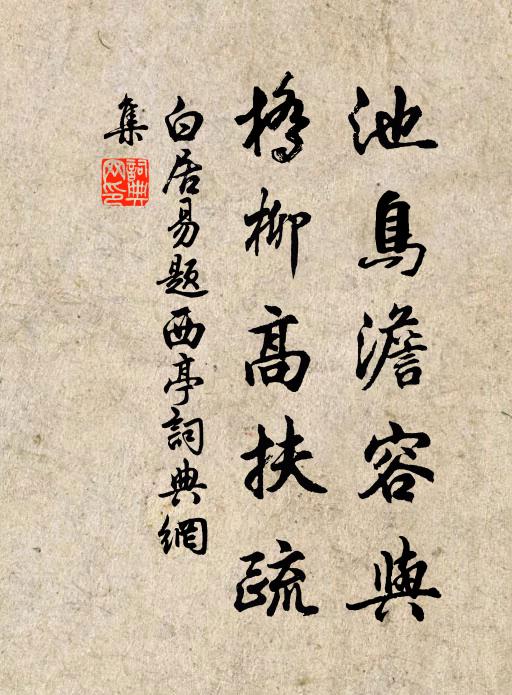 池鳥澹容與
橋柳高扶疏
白居易題西亭詞典網
集
詞典
网印